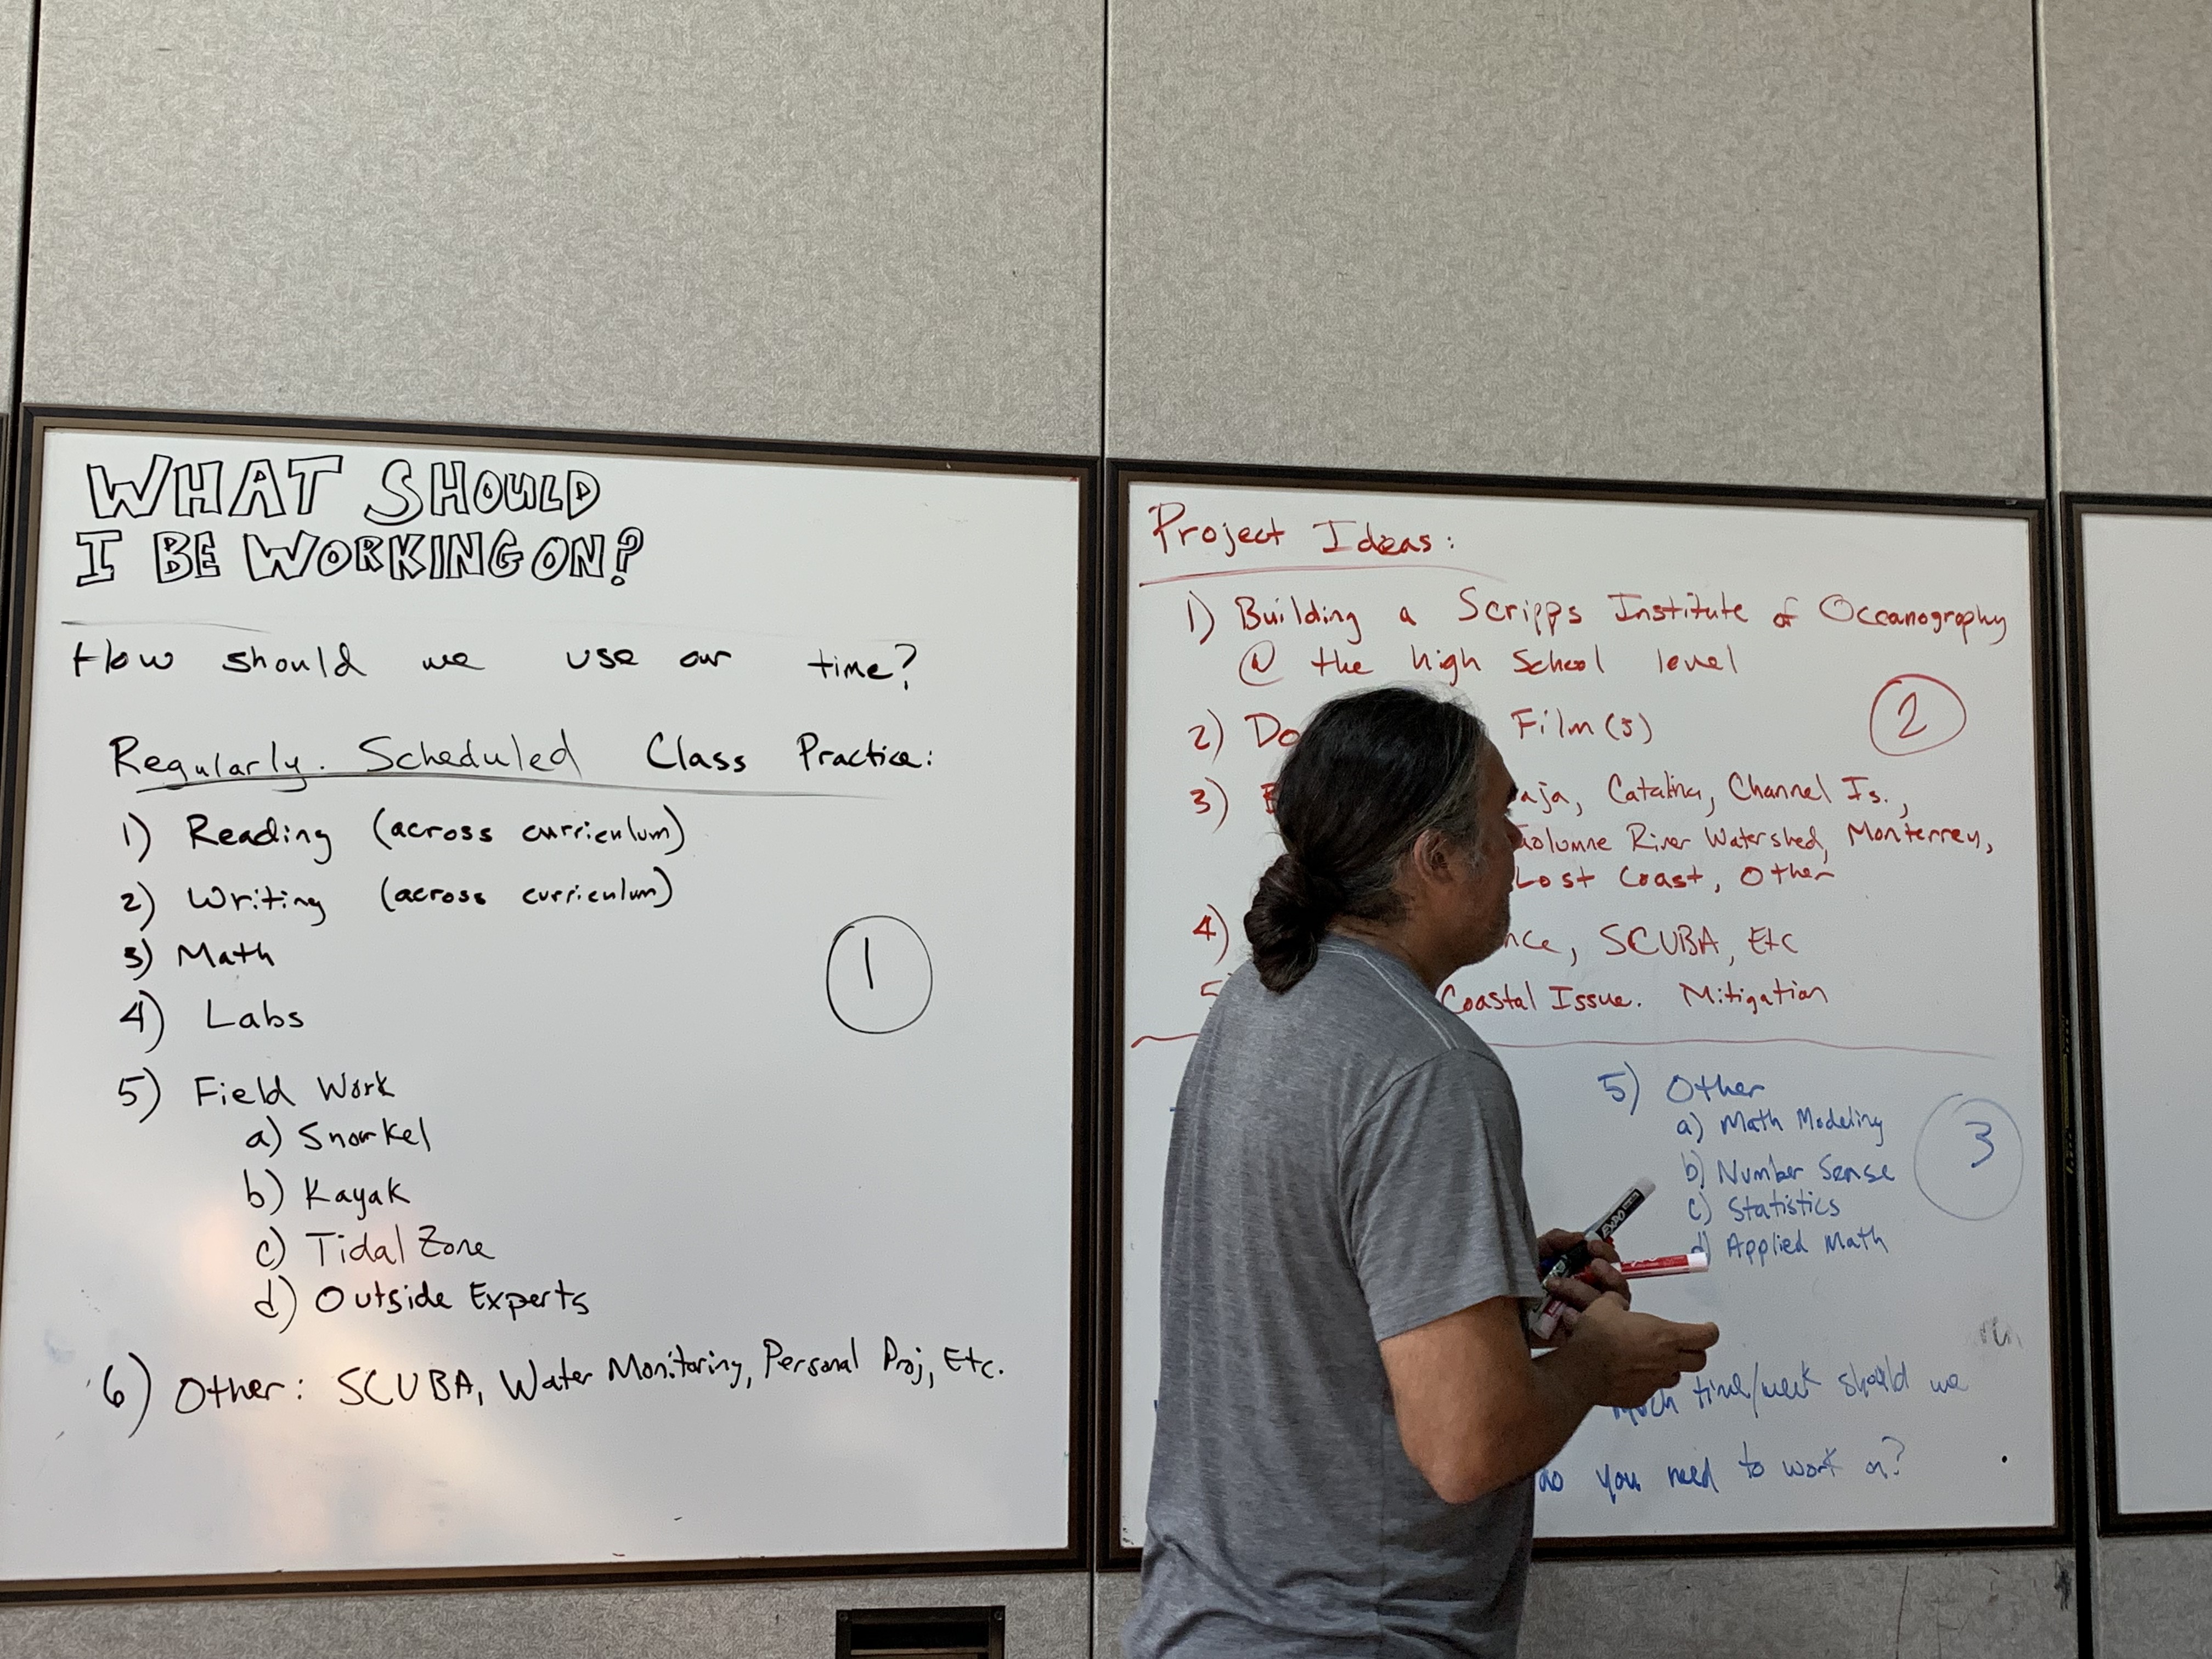 WHAT SHOULD
I BE WORKING ON?
How should we use our time?
Regularly. Scheduled Class Practice:
1) Reading (across curriculum)
2) Writing (across curriculum)
3) Math
4) Labs
5) Field Work
a) Snorkel
b) Kayak
c) Tidal Zone
d) Outside Experts
6) Other: SCUBA, Water Monitoring, Personal Proj, Etc.
1
Project Ideas:
1) Building a Scripps Institute of Oceanography
@ the high School level
2) Do Film(s)
2
3) aja, Catalina, Channel Is.,
olumne River Watershed, Monterrey,
Lost Coast, Other
4) nce, SCUBA, Etc
5 Coastal Issue. Mitigation
5) Other
a) Math Modeling
b) Number Sense
c) Statistics
d) Applied Math
3
EXPO
much time/week should we
do you need to work on?